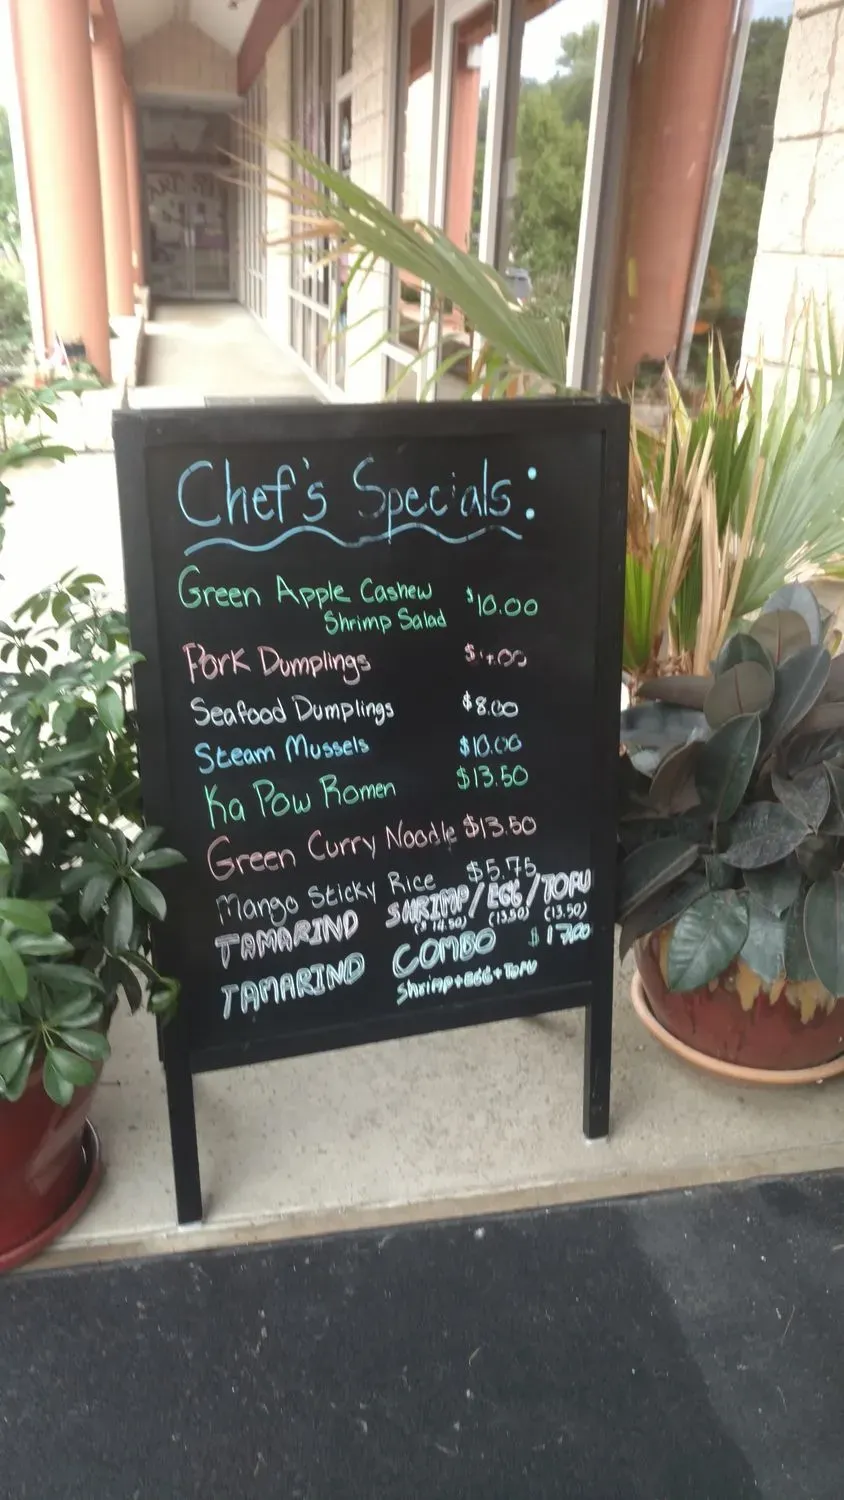 Chef's Specials:
Green Apple Cashew $10.00
Shrimp Salad
Pork Dumplings
Seafood Dumplings $8.00
Steam Mussels $10.00
Ka Pow Romen $13.50
Green Curry Noodle $13.50
Mango Sticky Rice $5.75
TAMARIND SHRIMP/EGG/TOFU
($14.50) (13.50) (13.50)
TAMARIND COMBO $17.00
Shrimp+EGG+TOFU